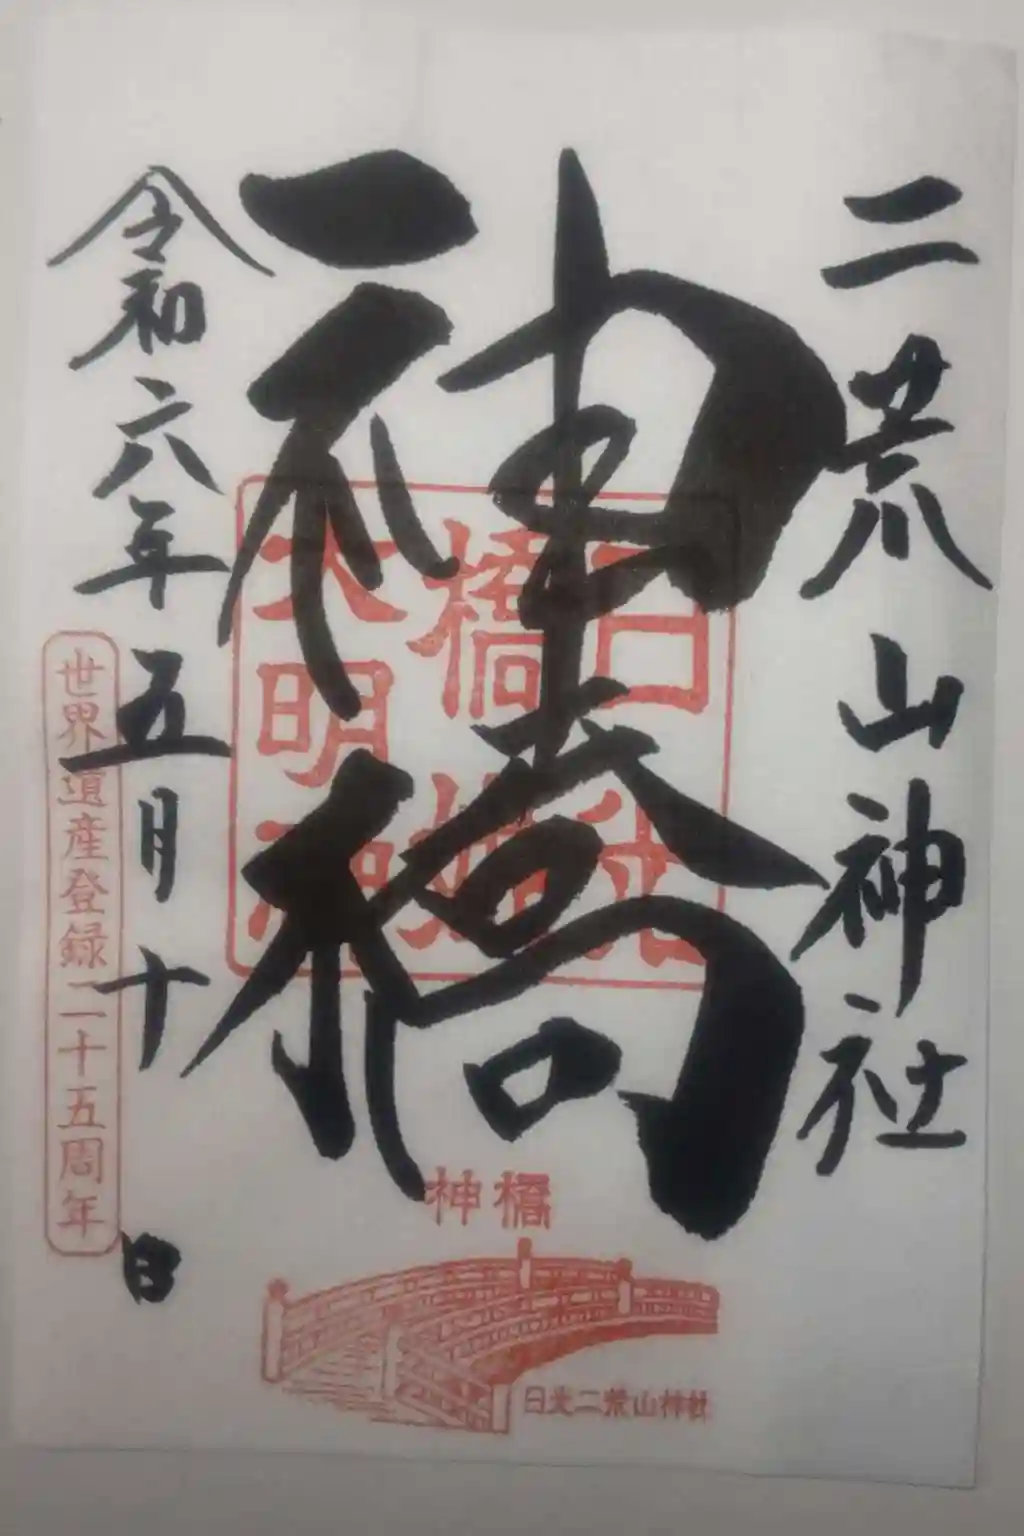 二荒山神社
神橋
令和六年五月十日
世界遺産登録二十五周年
神橋
日光二荒山神社